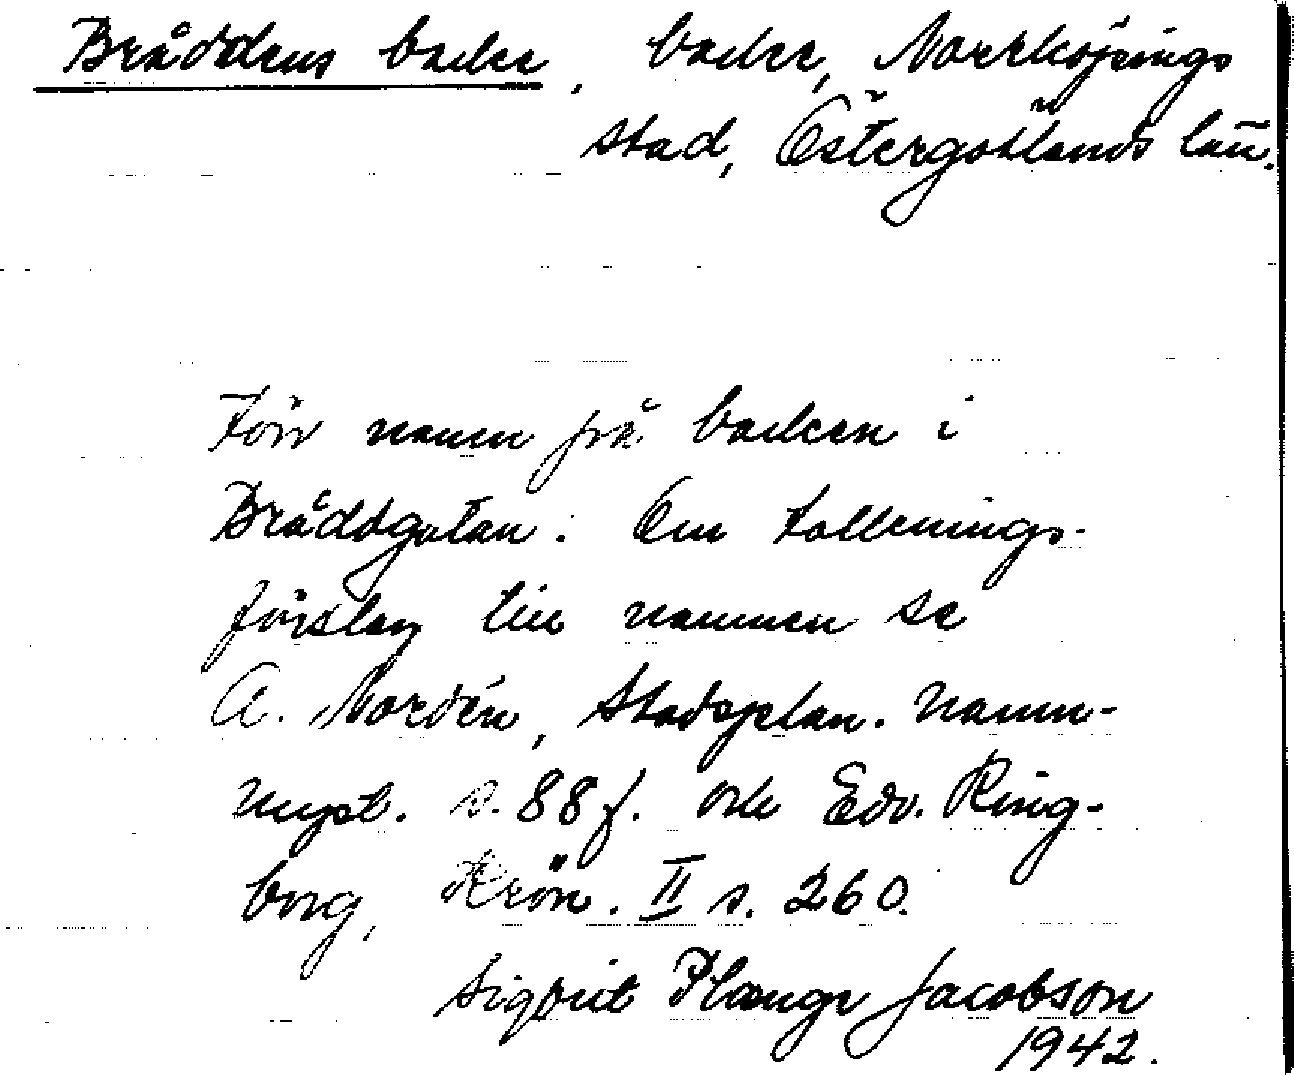 Bråddens backe, backe, Norrköpings
stad, Östergötlands län.
Förr namn på backen i
Bråddgatan. Om tolknings-
förslag till namnen se
A. Nordén, Stadsplan. namn-
nyst. s. 88 f. och Edv. Ring-
borg, Krön. II s. 260.
Sigbrit Plænge Jacobson
1942.